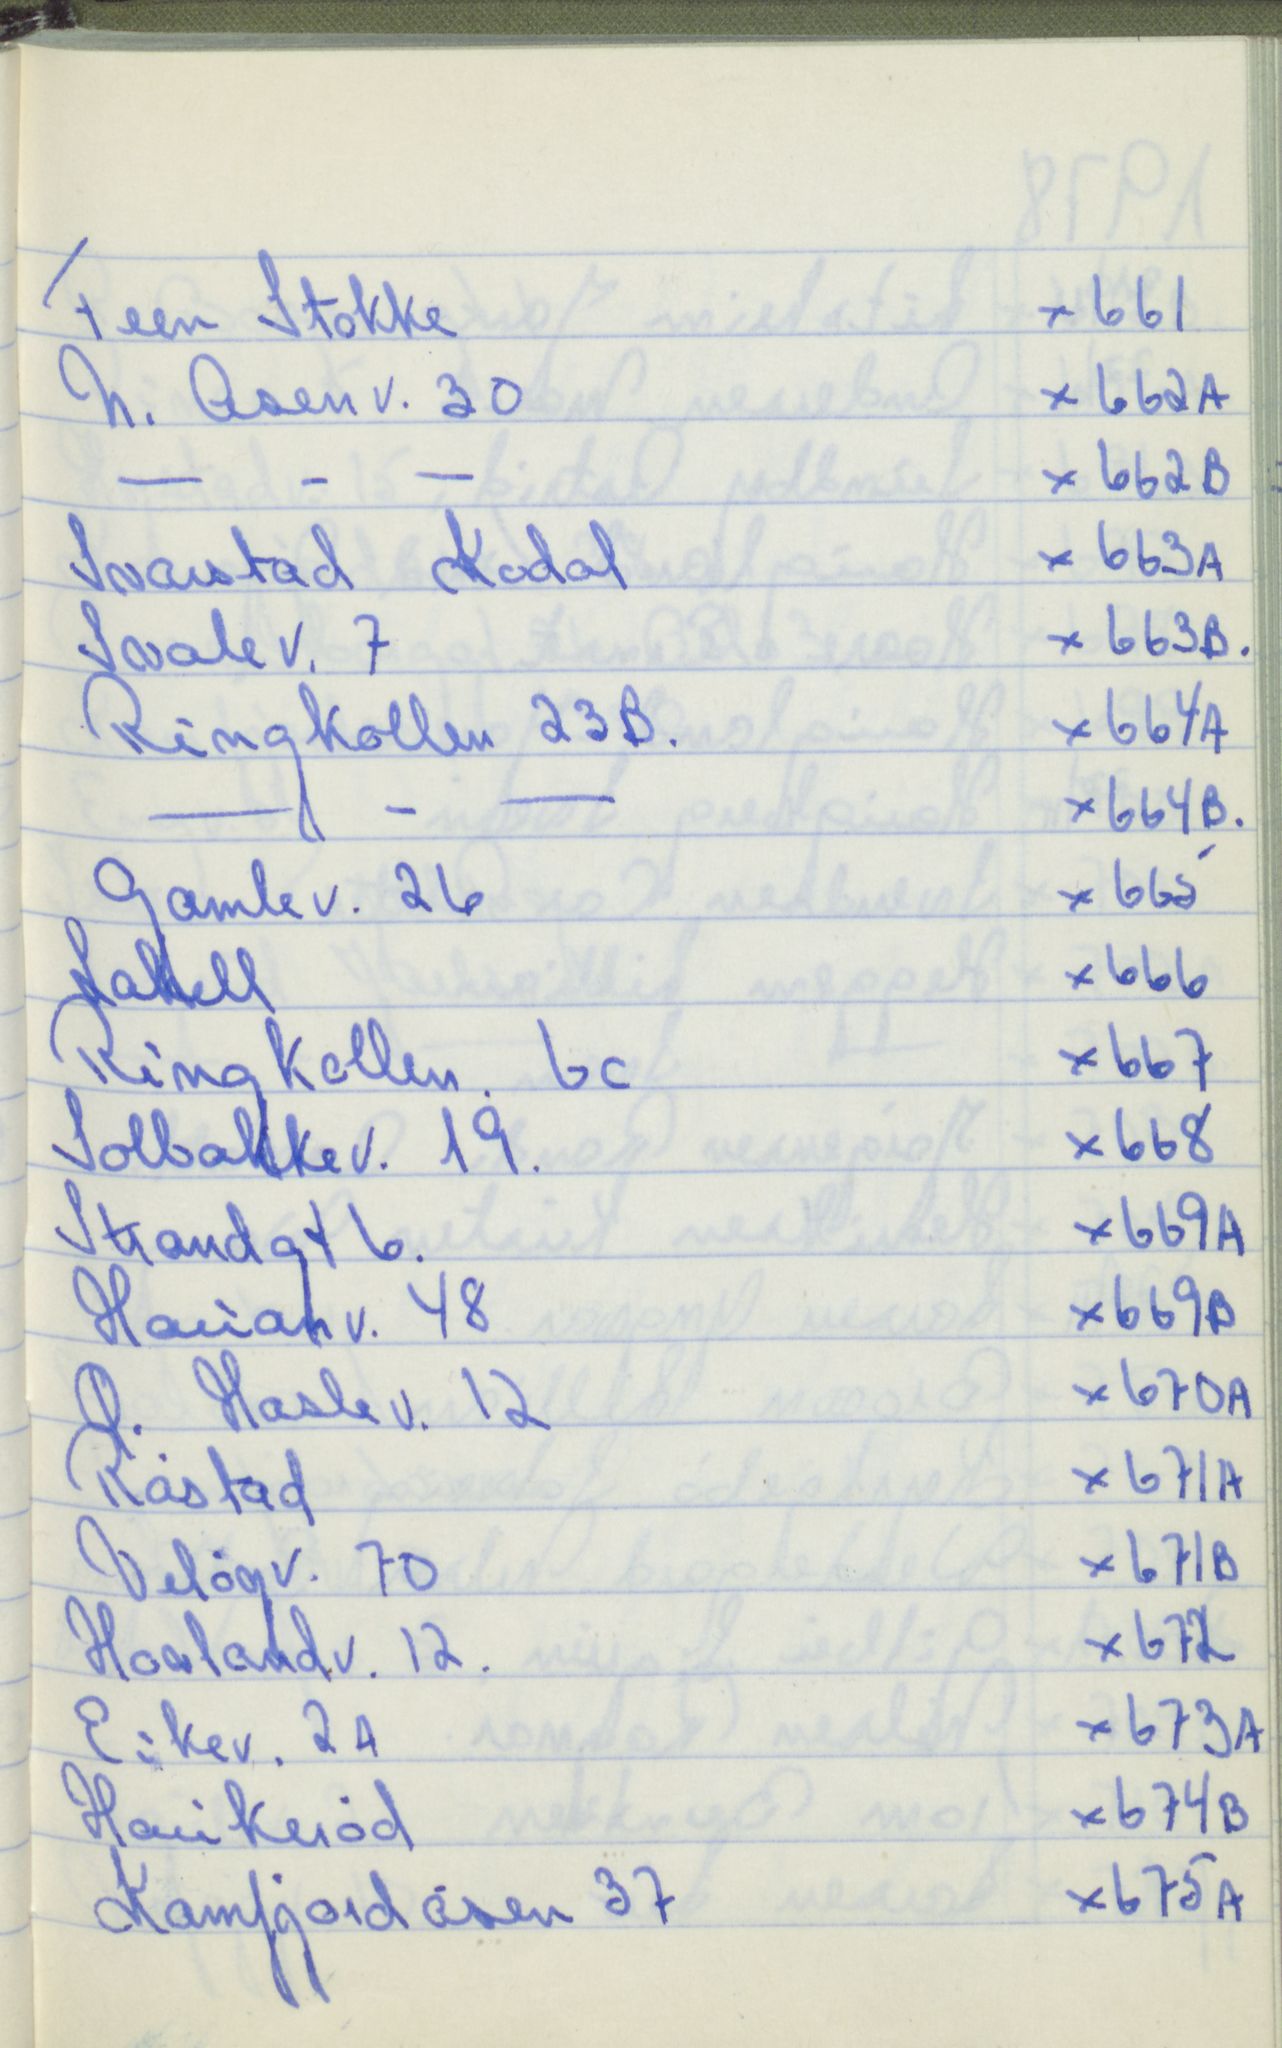 Feen Stokke x 661
N. Åsenv. 30 x 662A
— - — x 662B
Svarstad Kodal x 663A
Svalev. 7 x 663B.
Ringkollen 23B. x 664A
— - — x 664B.
Gamlev. 26 x 665
x 666
Ringkollen. 6c x 667
Solbakkev. 19. x 668
Strandgt 6. x 669A
v. 48 x 669B
Ø. Haslev. 12 x 670A
Råstad x 671A
Veløgv. 70 x 671B
Hovlandv. 12. x 672
Eikev. 2A x 673A
Haukerød x 674B
Kamfjordåsen 37 x 675A